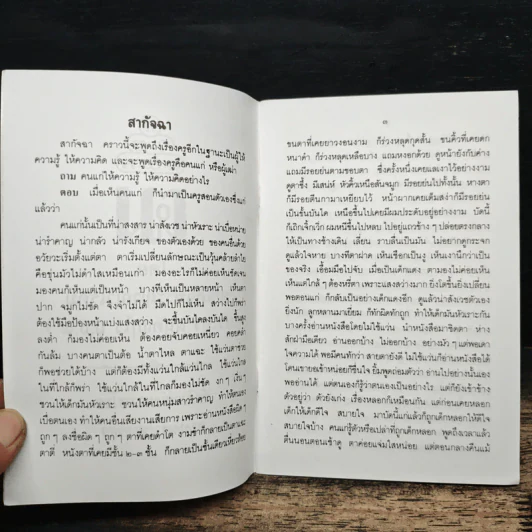 สากัจฉา
สากัจฉา คราวนี้จะพูดถึงเรื่องครูอีกในฐานะเป็นผู้ให้
ความรู้ ให้ความคิด และจะพูดเรื่องครูคือคนแก่ หรือผู้เฒ่า
ถาม คนแก่ให้ความรู้ ให้ความคิดอย่างไร
ตอบ เมื่อเห็นคนแก่ ก็นำมาเป็นครูสอนตัวเองซึ่งแก่
แล้วว่า
คนแก่นั้นเป็นที่น่าสงสาร น่าสังเวช น่าหัวเราะ น่าเบื่อหน่าย
น่ารำคาญ น่ากลัว น่ารังเกียจ ของตัวเองด้วย ของคนอื่นด้วย
อวัยวะเริ่มตั้งแต่ ตา ตาเริ่มเปลี่ยนลักษณะเป็นวุ้นคล้ายลำไย
คือขุ่นมัวไม่ดำใสเหมือนเก่า มองอะไรก็ไม่ค่อยเห็นชัดเจน
มองคนก็เห็นแต่เป็นหน้า บางทีที่เห็นเป็นหลายหน้า เห็นตา
ปาก จมูกไม่ชัด จึงจำไม่ได้ มืดไปก็ไม่เห็น สว่างไปก็พร่า
ต้องใช้มือป้องหน้าแบ่งแสงสว่าง จะขึ้นบันไดลงบันได ขึ้นสูง
ลงต่ำ ก็มองไม่ค่อยเห็น ต้องคอยจับคอยเหนี่ยว คอยคลำ
กันล้ม บางคนตาเป็นต้อ น้ำตาไหล ตาแฉะ ใช้แว่นตาช่วย
ก็พอช่วยได้บ้าง แต่ก็ต้องมีทั้งแว่นใกล้แว่นไกล ใช้แว่นไกล
ในที่ใกล้ก็พร่า ใช้แว่นใกล้ในที่ไกลก็มองไม่ชัด งก ๆ เงิ่น ๆ
ชวนให้เด็กมันหัวเราะ ชวนให้คนหนุ่มสาวรำคาญ ทำให้ตนเอง
เบื่อตนเอง ทำให้คนอื่นเสียงานเสียการ เพราะอ่านหนังสือผิด ๆ
ถูก ๆ ลงชื่อผิด ๆ ถูก ๆ ตาที่เคยดำโต งามขำก็กลายเป็นตาและ
ตาตี่ หนังตาที่เคยมีชั้น ๒-๓ ชั้น ก็กลายเป็นชั้นเดียวเหี่ยวย่น
๓
ขนตาที่เคยยาวงอนงาม ก็ร่วงหลุดกุดสั้น ขนคิ้วที่เคยดก
หนาดำ ก็ร่วงหลุดเหลือบาง แถมหงอกด้วย ดูหน้ายังกับค่าง
แถมมีรอยย่นตามขอบตา ซึ่งครั้งหนึ่งเคยแลเงาไว้อย่างงาม
ดูตาซึ้ง มีเสน่ห์ หัวคิ้วเหนือสันจมูก มีรอยย่นไปทั้งนั้น หางตา
ก็มีรอยตีนกามาเหยียบไว้ หน้าผากเคยเต็มสง่าก็มีรอยย่น
เป็นชั้นบันได เหนือขึ้นไปเคยมีผมประดับอยู่อย่างงาม บัดนี้
ก็เถิกเจิ๊กเวิ๊ก ผมหนีขึ้นไปหลบ ไปอยู่แถวข้าง ๆ ปล่อยตรงกลาง
ให้เป็นทางช้างเดิน เลี่ยน ราบลื่นเป็นมัน ไม่อยากดูกระจก
ดูแล้วใจหาย บางทีตาฝาด เห็นเชือกเป็นงู เห็นเงานึกว่าเป็น
ของจริง เอื้อมมือไปจับ เมื่อเป็นเด็กแดง ตามองไม่ค่อยเห็น
เห็นแต่ใกล้ ๆ ต้องหรี่ตา เพราะแสงสว่างมาก ยิ่งโตขึ้นยิ่งเปลี่ยน
พอตอนแก่ ก็กลับเป็นอย่างเด็กแดงอีก ดูแล้วน่าสังเวชตัวเอง
ยิ่งนัก ลูกหลานมาเยี่ยม ก็ทักผิดทักถูก ทำให้เด็กมันหัวเราะกัน
บางครั้งอ่านหนังสือโดยไม่ใช้แว่น นำหนังสือมาชิดตา ห่าง
สักฝ่ามือเดียว อ่านออกบ้าง ไม่ออกบ้าง อย่างมัว ๆ แต่พอเดา
ใจความได้ พอมีคนทักว่า สายตายังดี ไม่ใช้แว่นก็อ่านหนังสือได้
โดนเขายอเข้าหน่อยก็ขึ้นใจ ยิ้มพูดถ่อมตัวว่า อ่านไปอย่างนั้นเอง
พออ่านได้ แต่ตนเองก็รู้ว่าตนเองเป็นอย่างไร แต่ก็ยังเข้าข้าง
ตัวอยู่ว่า ตัวยังเก่ง เรื่องหลอกก็เหมือนกัน แต่ก่อนเคยหลอก
เด็กให้เด็กดีใจ สบายใจ มาบัดนี้แก่แล้วก็ถูกเด็กหลอกให้ดีใจ
สบายใจบ้าง คนแก่รู้ตัวหรือเปล่าที่ถูกเด็กหลอก พูดถึงเวลาแล้ว
ตื่นนอนตอนเช้าดู ตาค่อยแจ่มใสหน่อย แต่ตอนกลางคืนแม้